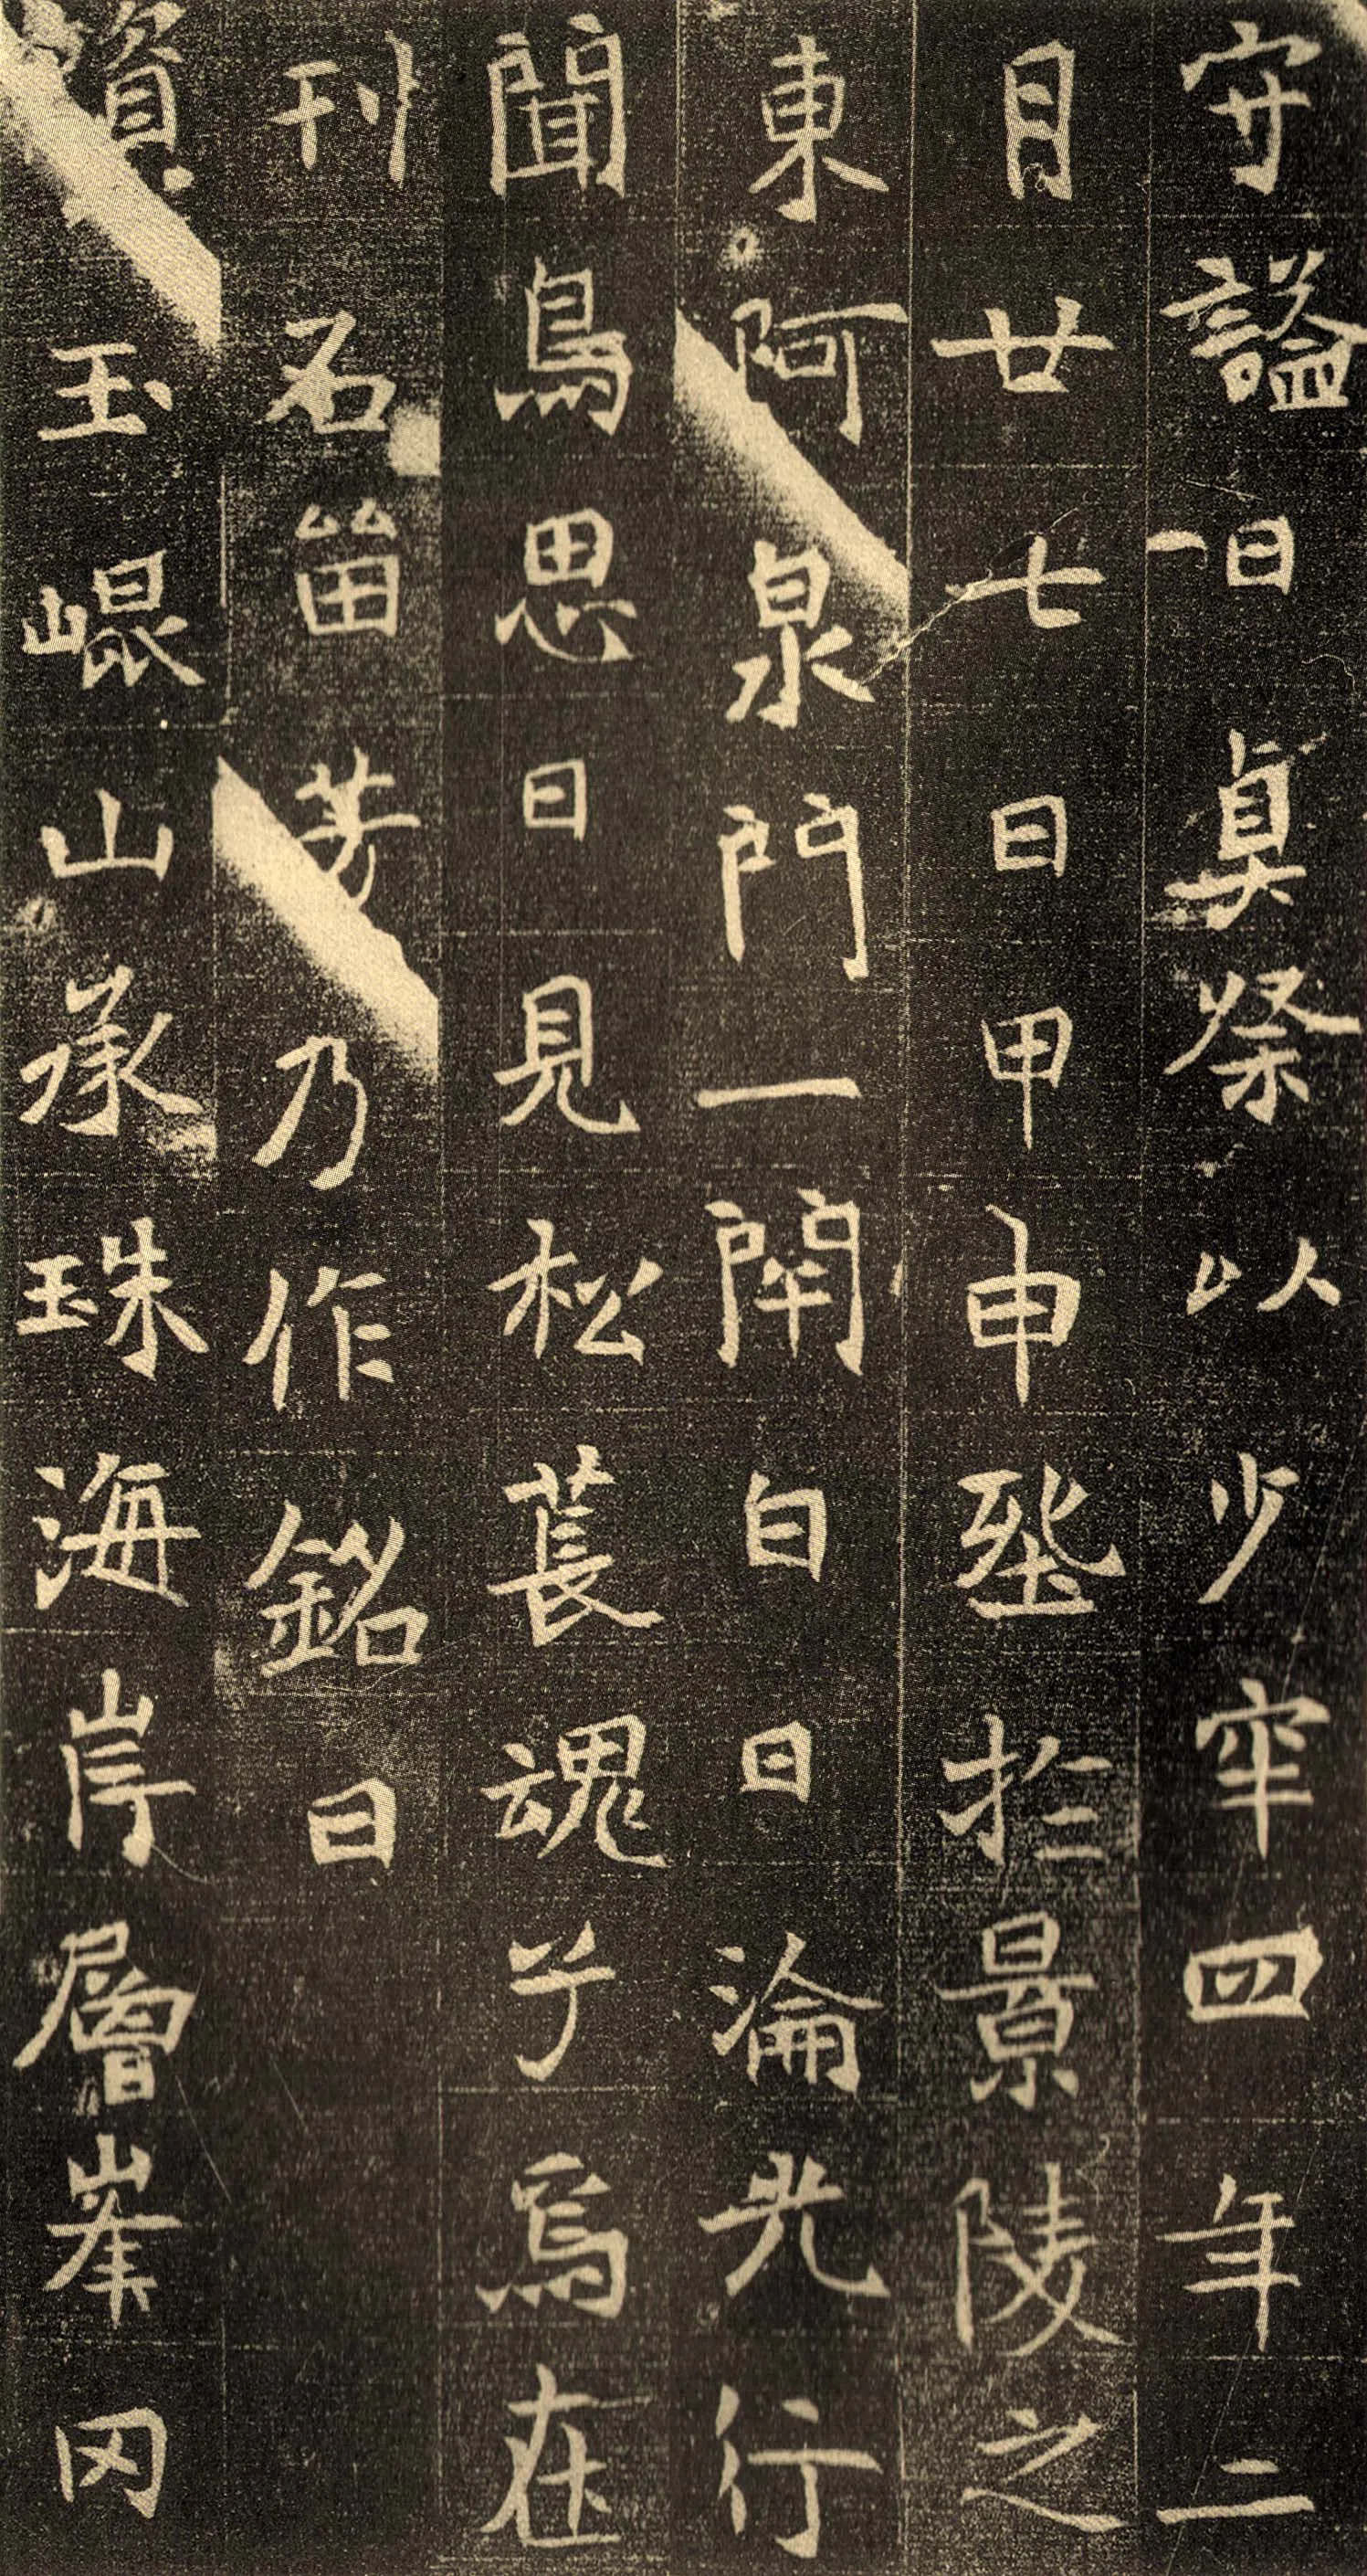 守謚曰貞祭以少窂四年二
月廿七日甲申塟於景陵之
東阿泉門一閇白日淪光行
聞鳥思日見松萇魂乎焉在
刊石畱芳乃作銘曰
資玉崐山承珠海岸層峯冈